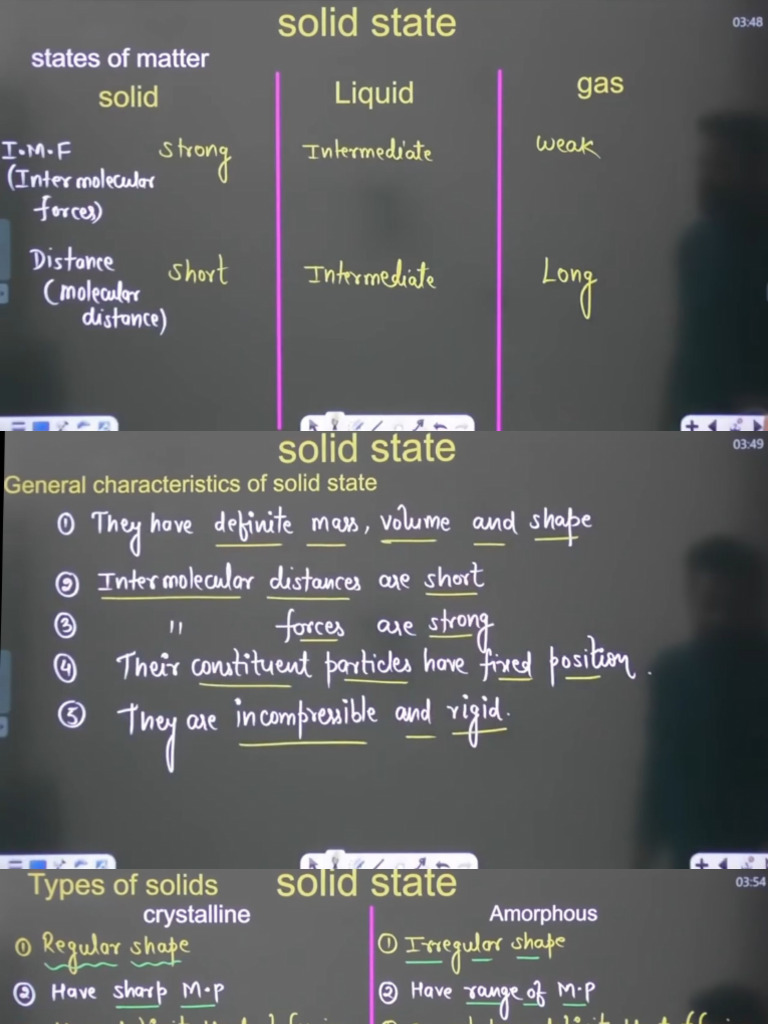 solid state
03:48
states of matter
solid Liquid gas
I.M.F strong Intermediate weak
(Inter molecular
forces)
Distance short Intermediate Long
(molecular
distance)
solid state
03:49
General characteristics of solid state
① They have definite mass, volume and shape
② Intermolecular distances are short
③ " forces are strong
④ Their constituent particles have fixed position.
⑤ They are incompressible and rigid.
Types of solids solid state
03:54
crystalline Amorphous
① Regular shape ① Irregular shape
② Have sharp M.P ② Have range of M.P